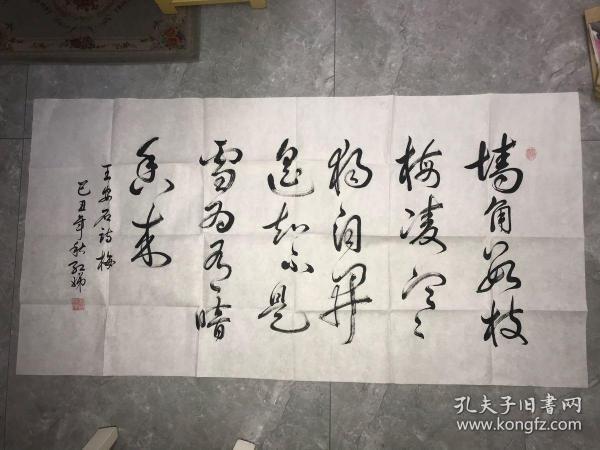 墙角数枝
梅凌寒
独自开
遥知不是
雪为有暗
香来
王安石诗梅
己丑年秋红娣
孔夫子旧书网
www.kongfz.com